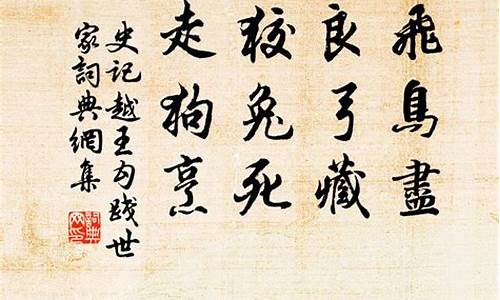 飛鳥盡
良弓藏
狡兔死
走狗烹
史記越王勾踐世
家詞典網集